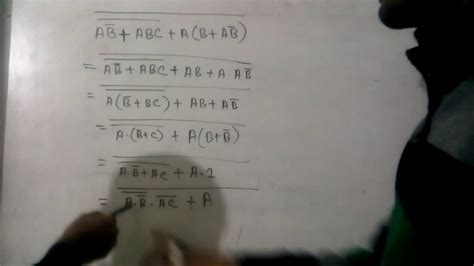 AB̅ + ABC + A(B + AB̅)
= AB̅ + ABC + AB + A.AB̅
= A(B̅ + BC) + AB + AB̅
= A.(B̅+C) + A(B+B̅)
= A.B̅ + AC + A.1
= A.B̅ . AC + A